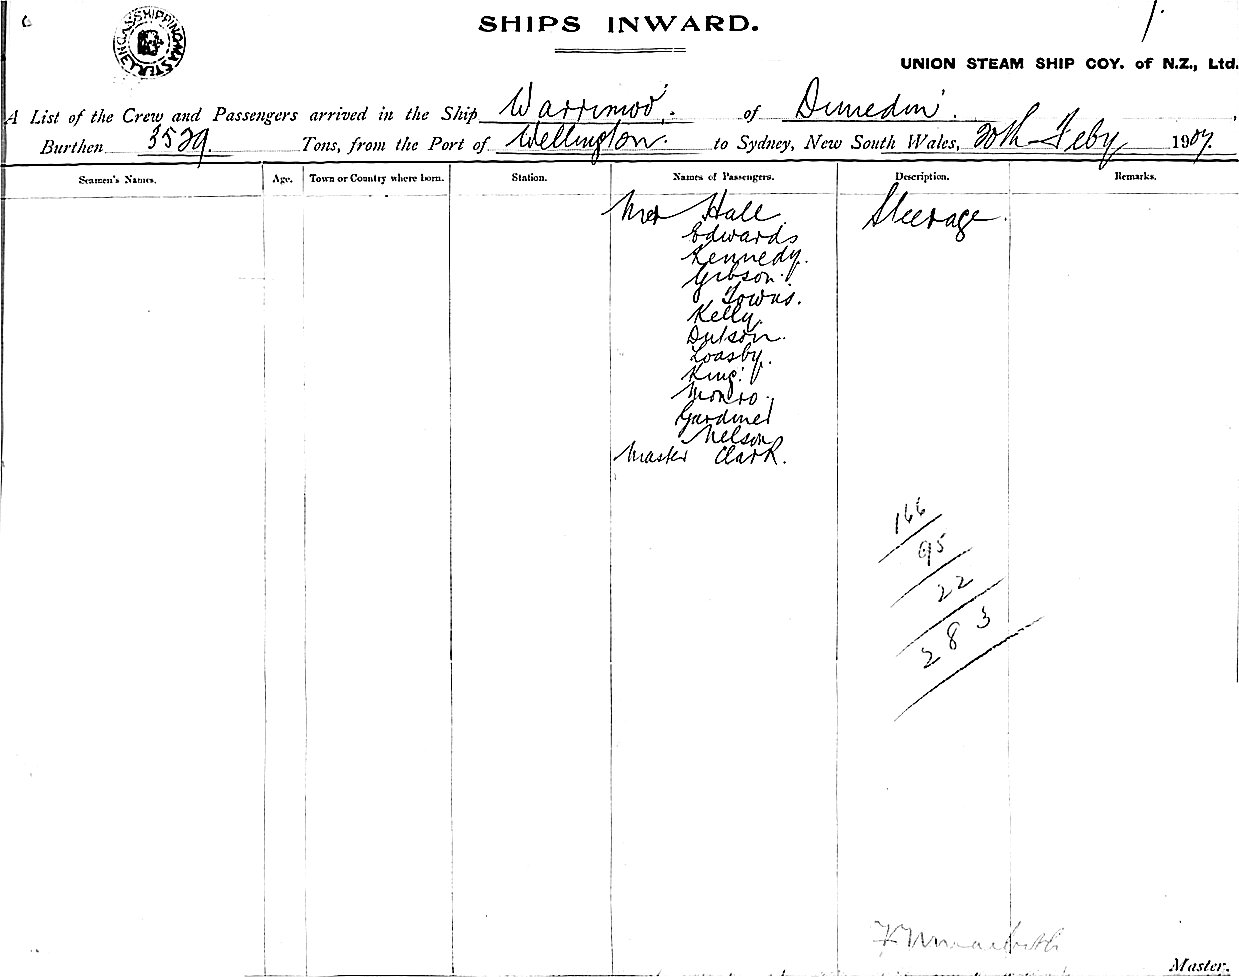 6
SHIPPING MASTER
SHIPS INWARD.
1.
UNION STEAM SHIP COY. of N.Z., Ltd.
A List of the Crew and Passengers arrived in the Ship Warrimoo. of Dunedin.
Burthen 3529. Tons, from the Port of Wellington. to Sydney, New South Wales, 20th Feby 1907.
Seamen's Names. Age. Town or Country where born. Station. Names of Passengers. Description. Remarks.
Mrs Hall Steerage.
Edwards
Kennedy.
Gibson.
Towns.
Kelly.
Dutson.
Loasby.
King.
Monro.
Gardiner
Nelson
Master Clark.
166
95
22
283
Master.